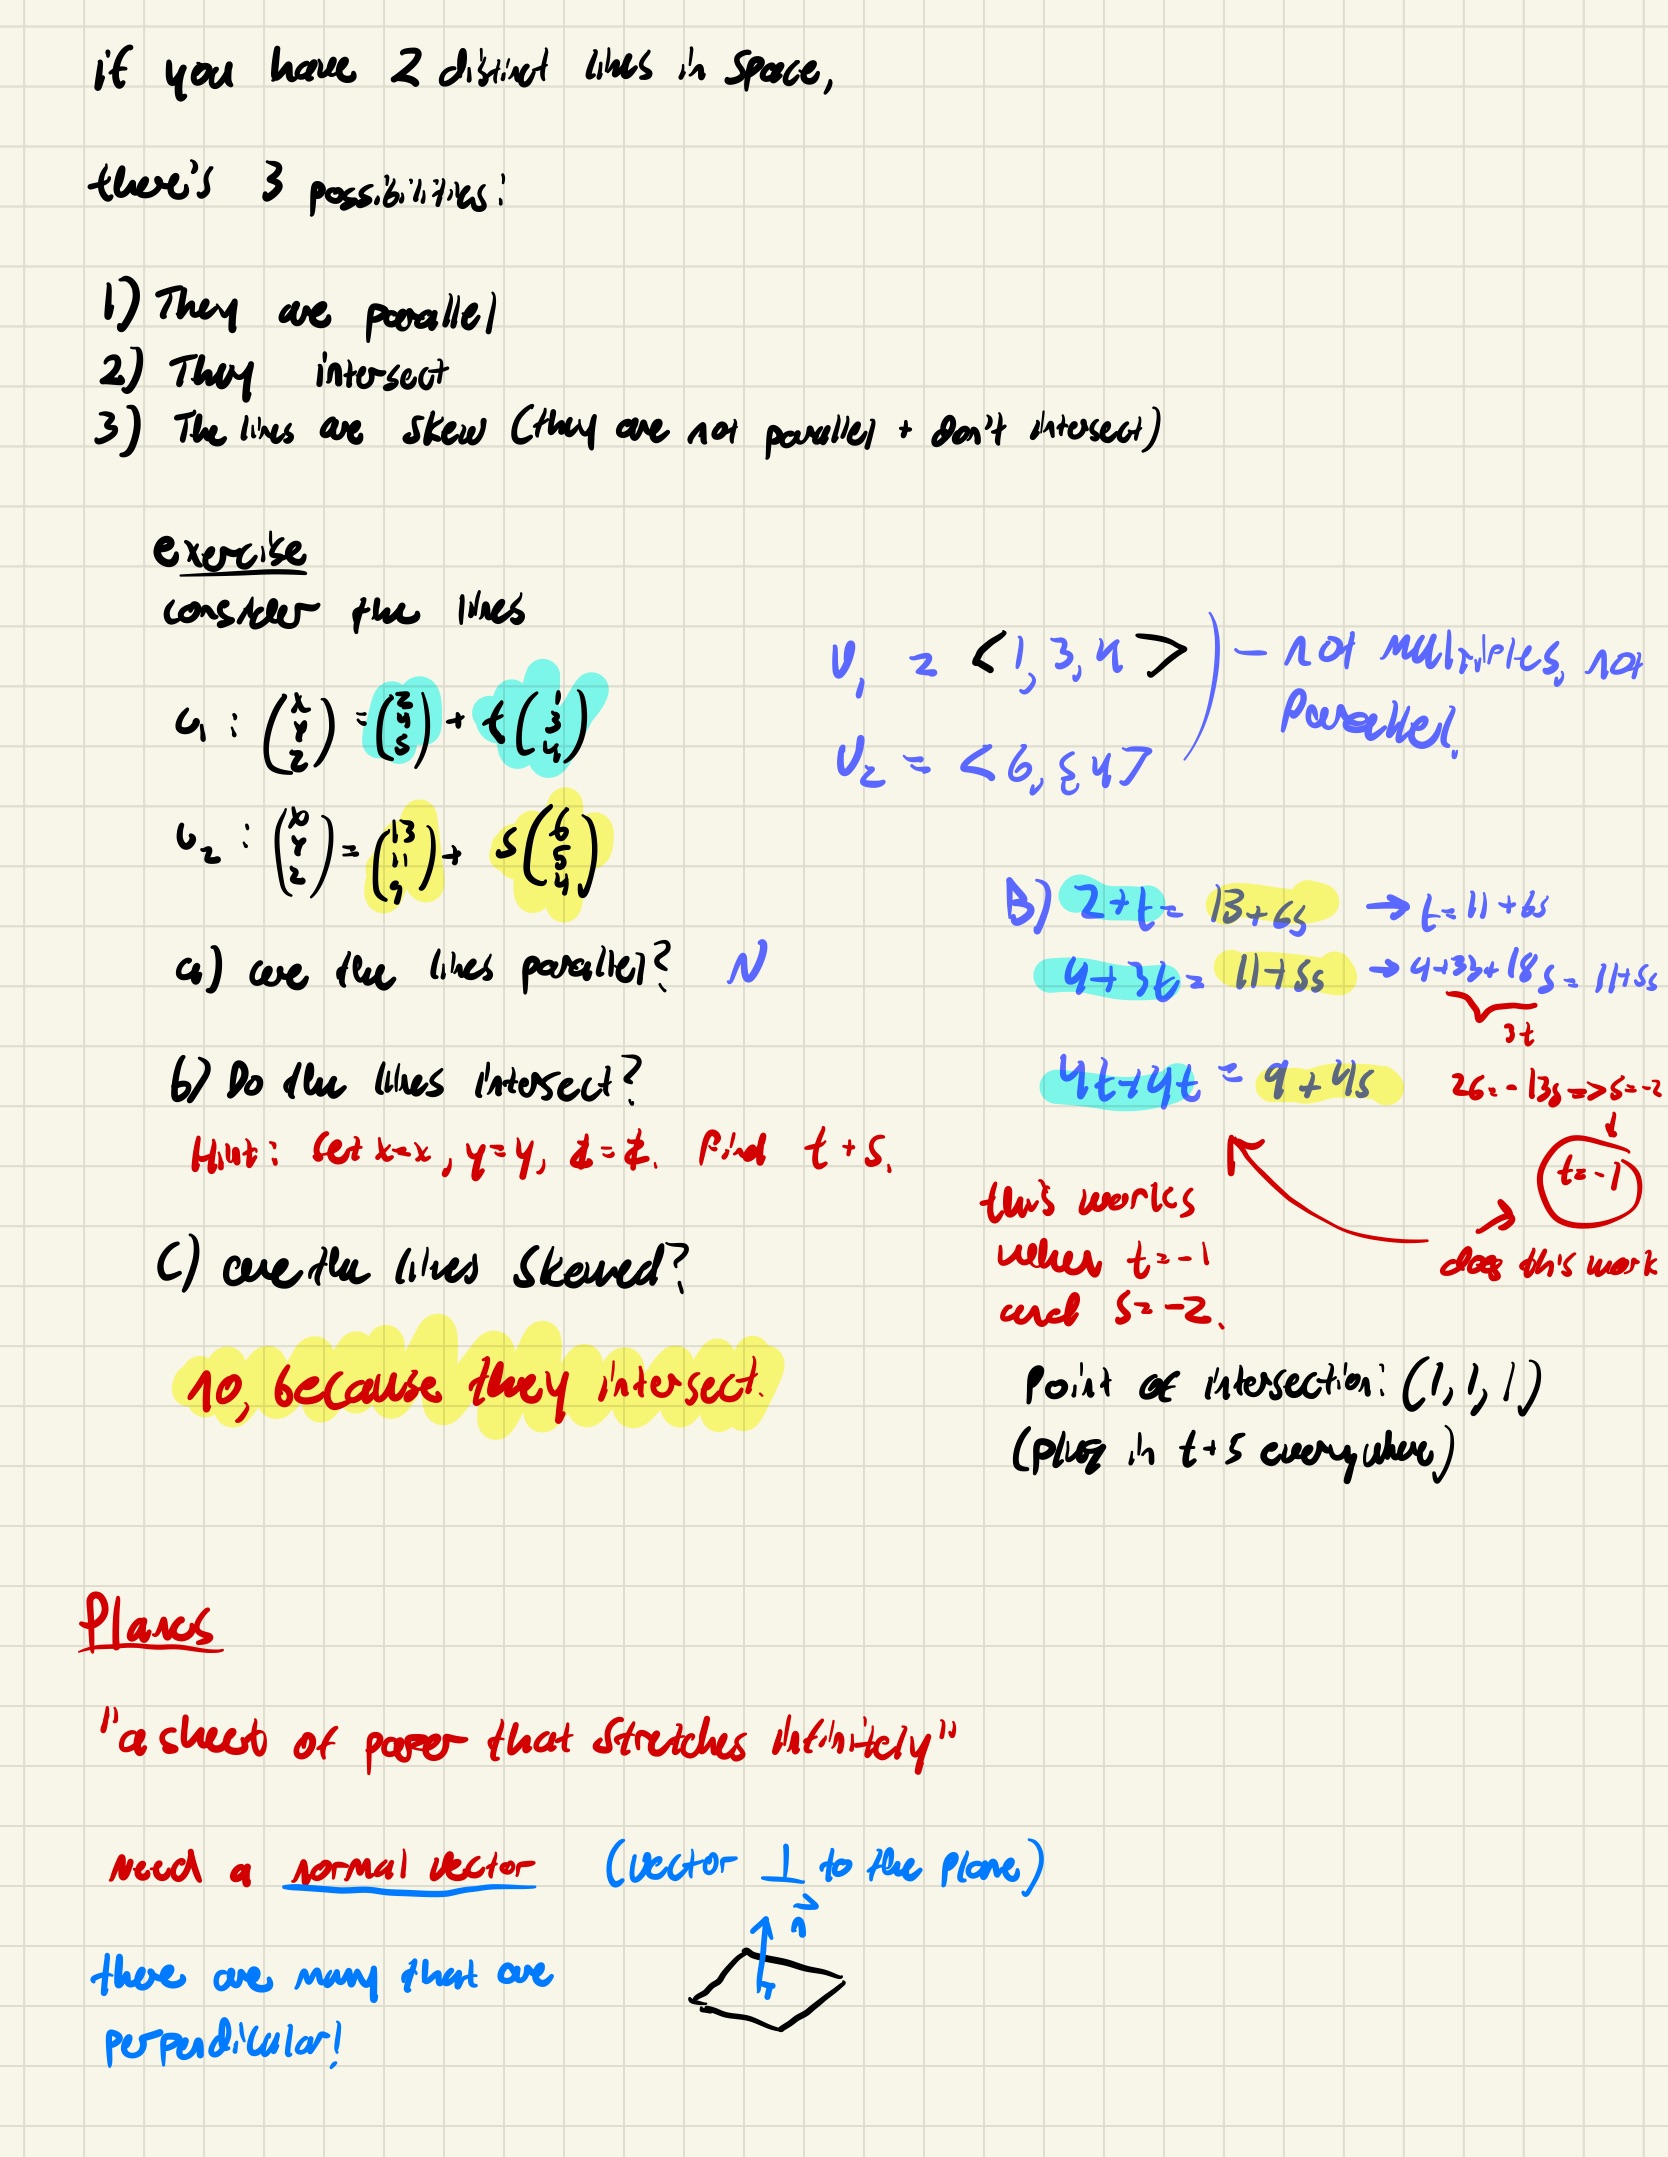 if you have 2 distinct lines in space,
there's 3 possibilities:
1) They are parallel
2) They intersect
3) The lines are skew (they are not parallel + don't intersect)
exercise
consider the lines
L₁ : (x y z) = (2 4 5) + t (1 3 4)
L₂ : (x y z) = (13 11 9) + s (6 5 4)
v₁ = <1, 3, 4> ) - not multiples, not
parallel.
v₂ = <6, 5 4>
a) are the lines parallel? N
b) Do the lines intersect?
Hint: Set x=x, y=y, z=z. Find t + s.
c) are the lines skewed?
no, because they intersect.
B) 2+t = 13+6s → t=11+6s
4+3t = 11+5s → 4+33+18s = 11+5s
3t
4t+4t = 9+4s
26=-13s => s=-2
↓
t=-1
→ does this work
this works
when t=-1
and s=-2.
Point of intersection: (1, 1, 1)
(plug in t+s everywhere)
Planes
"a sheet of paper that stretches infinitely"
need a normal vector (vector ⊥ to the plane)
n⃗
there are many that are
perpendicular!